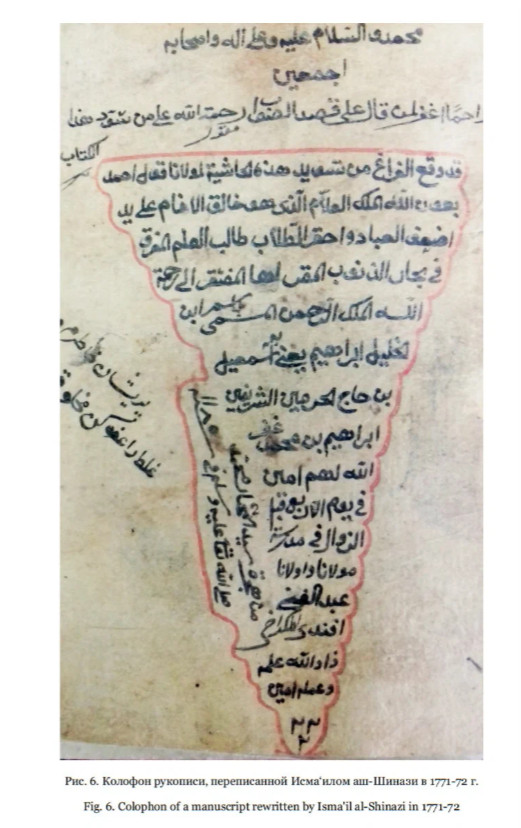 محمد والسلام عليه وعلى اله واصحابه
اجمعين
اغفر لمن قال على قصد رحمة الله على من سود هذا
الكتاب
قد وقع الفراغ من تسويد هذه الحاشية لمولانا قول احمد
بعون الله الملك العلام الذى هو خالق الانام على يد
اضعف العباد واحقر الطلاب طالب العلم الغرق
فى بحار الذنوب المقر لها المفتقر الى رحمة
الله الملك الرحمن المسمى باسم ابن
الخليل ابراهيم يعنى اسمعيل
بن حاج الحرمين الشريفين
ابراهيم بن محمد غفر
الله لهم امين
فى يوم قبل
الزوال فى مدرسة
مولانا واولانا
عبد الغنى
افندى
زاد الله علمه
وعمله امين
صلى الله تعالى عليه وسلم فى
من هجرة سيد
Рис. 6. Колофон рукописи, переписанной Исмаʻилом аш-Шинази в 1771-72 г.
Fig. 6. Colophon of a manuscript rewritten by Ismaʻil al-Shinazi in 1771-72